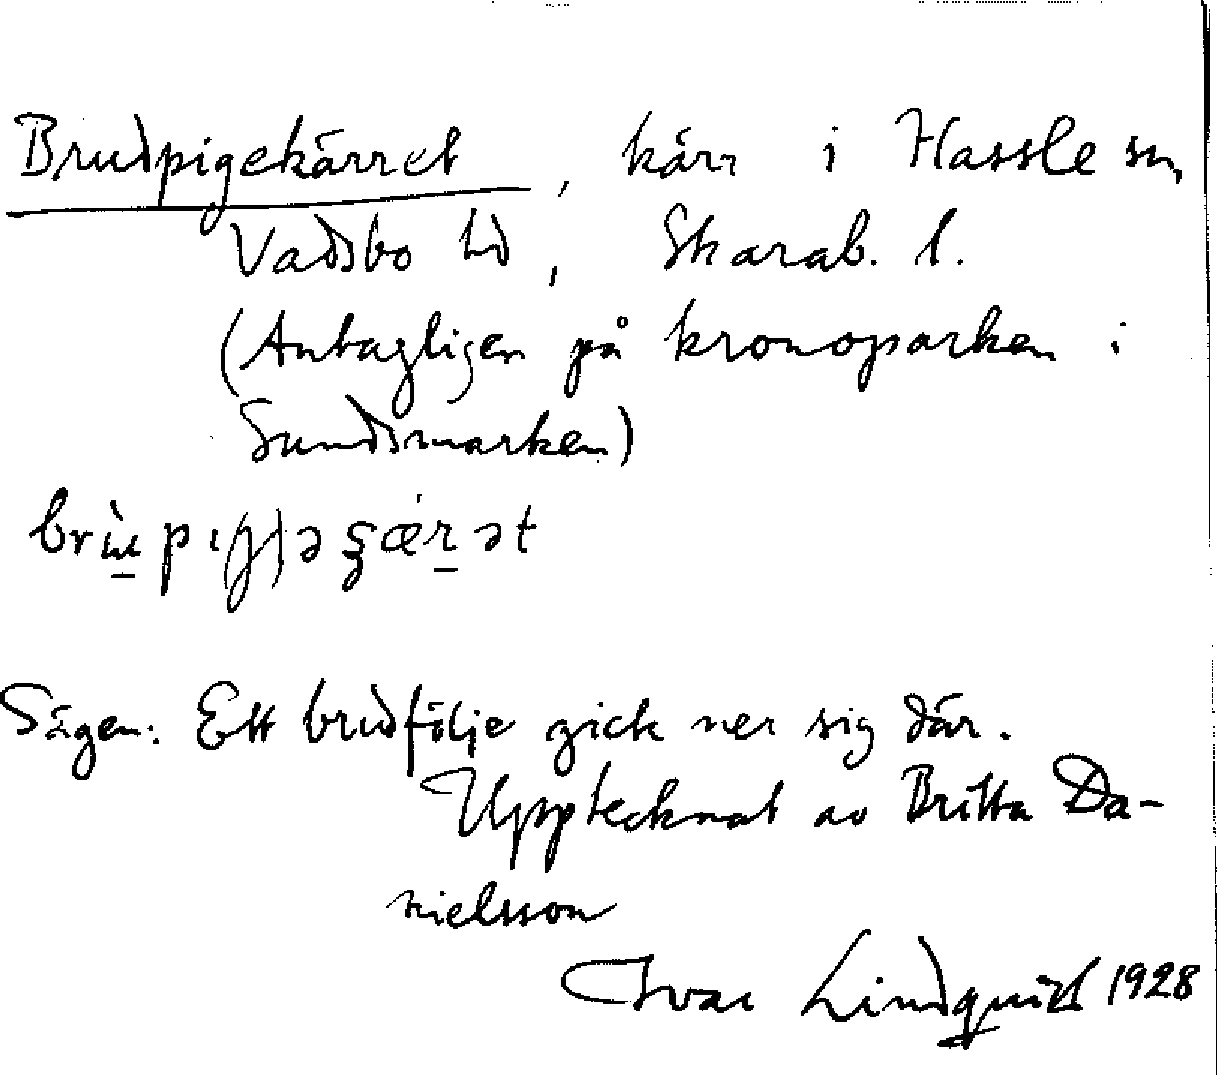 Brudpigekärret, kärr i Hassle sn,
Vadsbo hd, Skarab. l.
(Antagligen på kronoparken i
Sundsmarken)
Sägen: Ett brudfölje gick ner sig där.
Upptecknat av Britta Da-
nielsson
Ivar Lindquist 1928